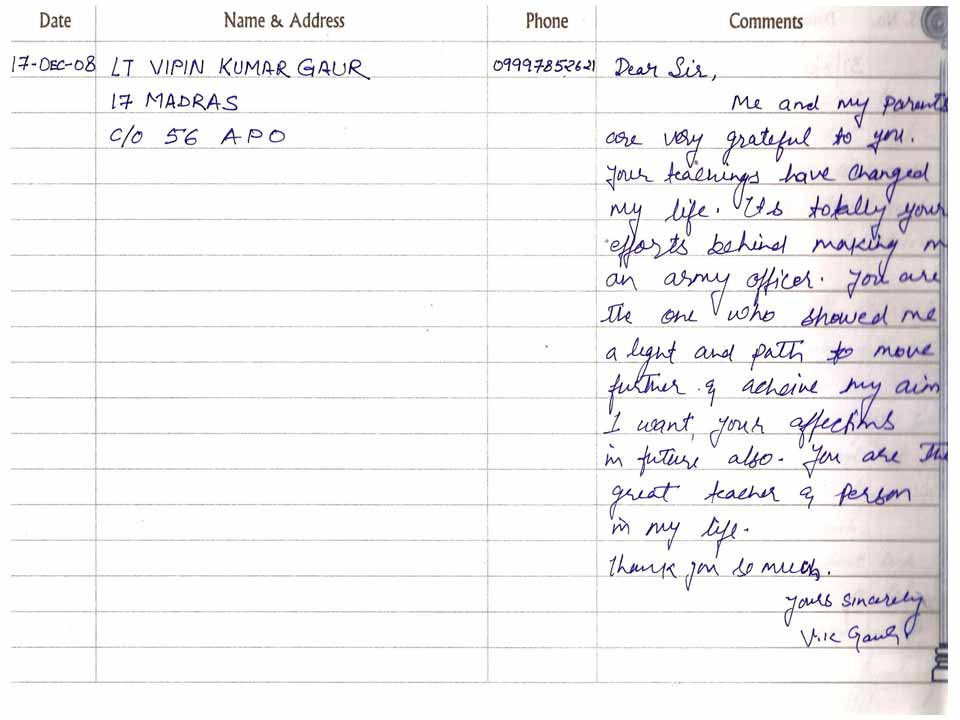 Date Name & Address Phone Comments
17-DEC-08 LT VIPIN KUMAR GAUR 09997852621 Dear Sir,
17 MADRAS Me and my parents
C/O 56 APO are very grateful to you.
Your teachings have changed
my life. Its totally your
efforts behind making m
an army officer. You are
the one who showed me
a light and path to move
further & acheive my aim
I want your affections
in future also. You are the
great teacher & person
in my life.
Thank you so much.
Yours sincerely
V.K Gaur